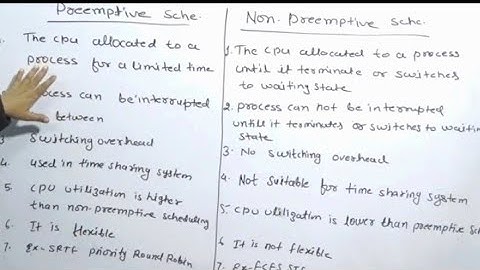 Preemptive Sche.
The cpu allocated to a
process for a limited time
process can be interrupted
between
3 switching overhead
4. used in time sharing system
5 CPU utilization is higher
than non-preemptive scheduling
6. It is flexible
7. Ex- SRTF priority Round Robin
Non-Preemptive sche.
1. The CPU allocated to a process
until it terminate or switches
to waiting state
2. process can not be interrupted
until it terminates or switches to waiting
state
3. No switching overhead
4. Not suitable for time sharing system
5 CPU utilization is lower than preemptive sch
6 It is not flexible
7. Ex- FCFS